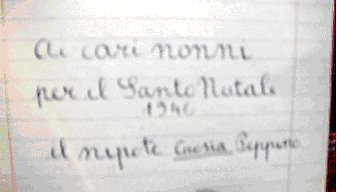 Ai cari nonni
per il Santo Natale
1946
il nipote Peppino